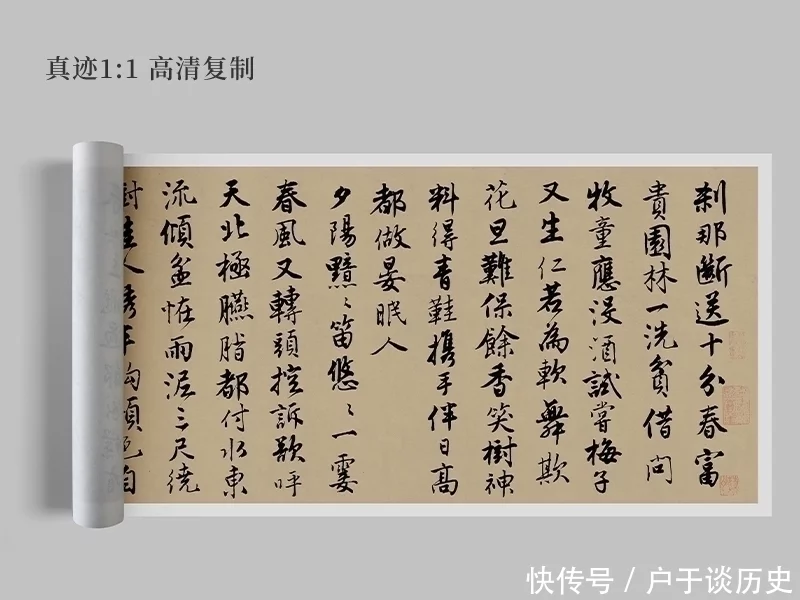 真迹1:1 高清复制
刹那斷送十分春富
貴園林一洗貧借問
牧童應没酒試嘗梅子
又生仁若為軟舞欺
花旦難保餘香笑樹神
料得青鞋攜手伴日高
都做晏眠人
夕陽黯〻笛悠〻一霎
春風又轉頭控訴欲呼
天北極臙脂都付水東
流傾盆怪雨泥三尺繞
快传号 / 户于谈历史